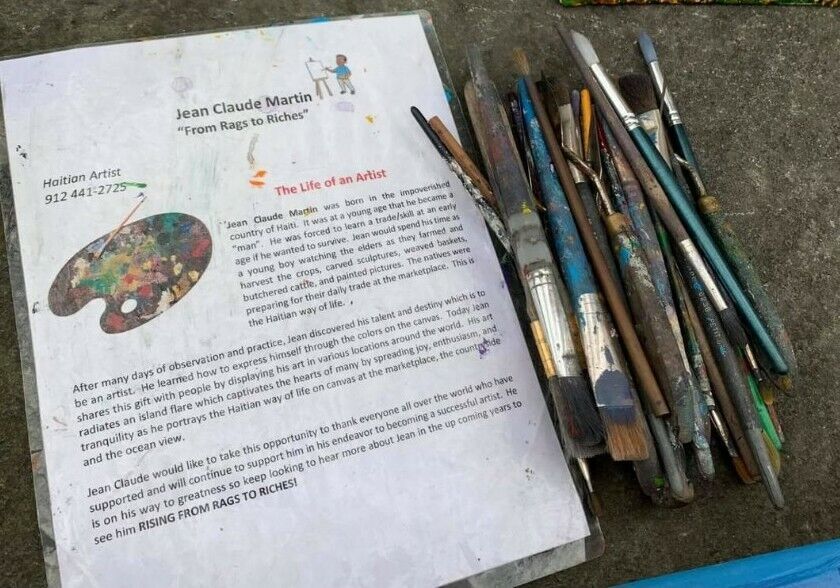 Jean Claude Martin
"From Rags to Riches"
Haitian Artist
912 441-2725
The Life of an Artist
Jean Claude Martin was born in the impoverished
country of Haiti. It was at a young age that he became a
"man". He was forced to learn a trade/skill at an early
age if he wanted to survive. Jean would spend his time as
a young boy watching the elders as they farmed and
harvest the crops, carved sculptures, weaved baskets,
butchered cattle, and painted pictures. The natives were
preparing for their daily trade at the marketplace. This is
the Haitian way of life.
After many days of observation and practice, Jean discovered his talent and destiny which is to
be an artist. He learned how to express himself through the colors on the canvas. Today Jean
shares this gift with people by displaying his art in various locations around the world. His art
radiates an island flare which captivates the hearts of many by spreading joy, enthusiasm, and
tranquility as he portrays the Haitian way of life on canvas at the marketplace, the countryside
and the ocean view.
Jean Claude would like to take this opportunity to thank everyone all over the world who have
supported and will continue to support him in his endeavor to becoming a successful artist. He
is on his way to greatness so keep looking to hear more about Jean in the up coming years to
see him RISING FROM RAGS TO RICHES!